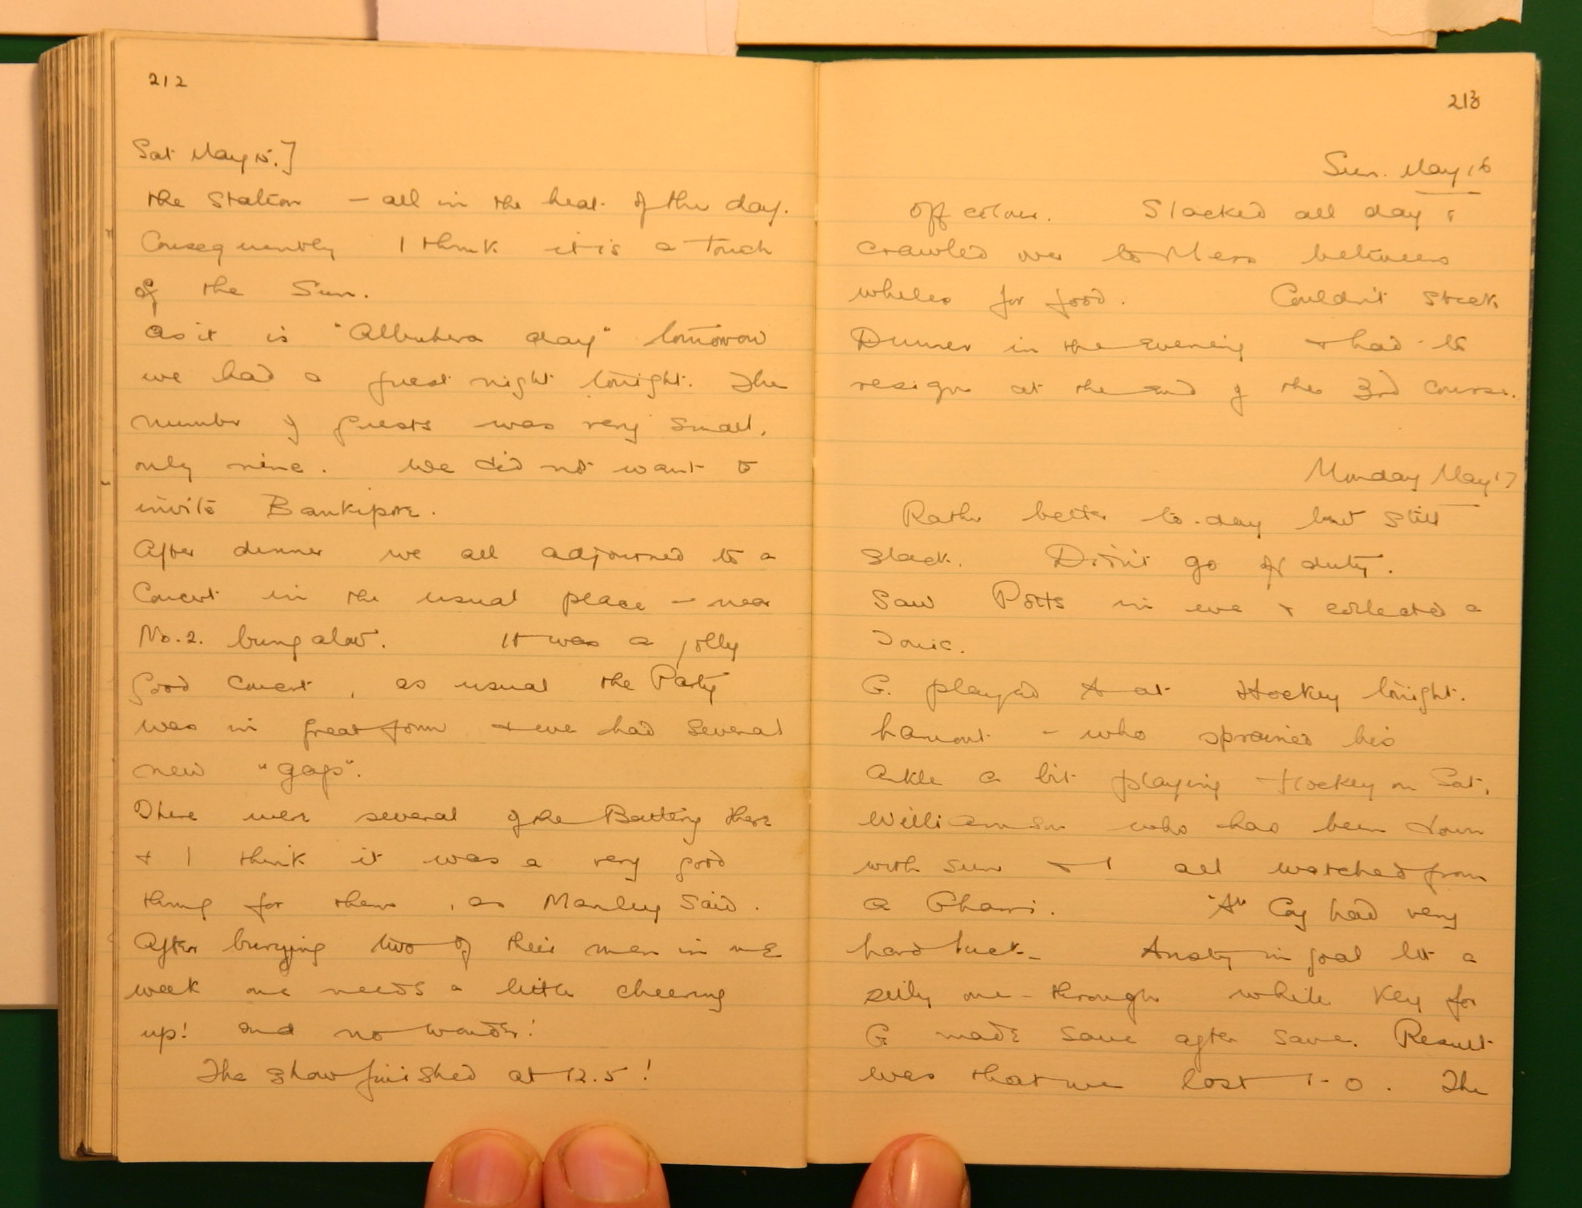 212
Sat May 15.]
the station — all in the heat of the day.
Consequently I think it is a touch
of the Sun.
As it is "Albuhera day" tomorrow
we had a guest night tonight. The
number of guests was very small,
only nine. We did not want to
invite Bankipore.
After dinner we all adjourned to a
Concert in the usual place — near
No. 2. bungalow. It was a jolly
good concert, as usual the Party
was in great form & we had several
new "gags".
There were several of the Battery there
& I think it was a very good
thing for them, as Manley said.
After burying two of their men in one
week one needs a little cheering
up! and no wonder!
The show finished at 12.5!
213
Sun. May 16
Off colour. Slacked all day &
crawled over to Mess between
whiles for food. Couldn't stick
Dinner in the evening & had to
resign at the end of the 3rd Course.
Monday May 17
Rather better to-day but still
slack. Didn't go off duty.
Saw Potts in eve & collected a
Tonic.
G. played A at Hockey tonight.
- who sprained his
ankle a bit playing Hockey on Sat.
Williamson who has been down
with sun & I all watched from
a Gharri. "A" Coy had very
hard luck - in goal let a
silly one through while Key for
G made save after save. Result
was that we lost 1-0. The